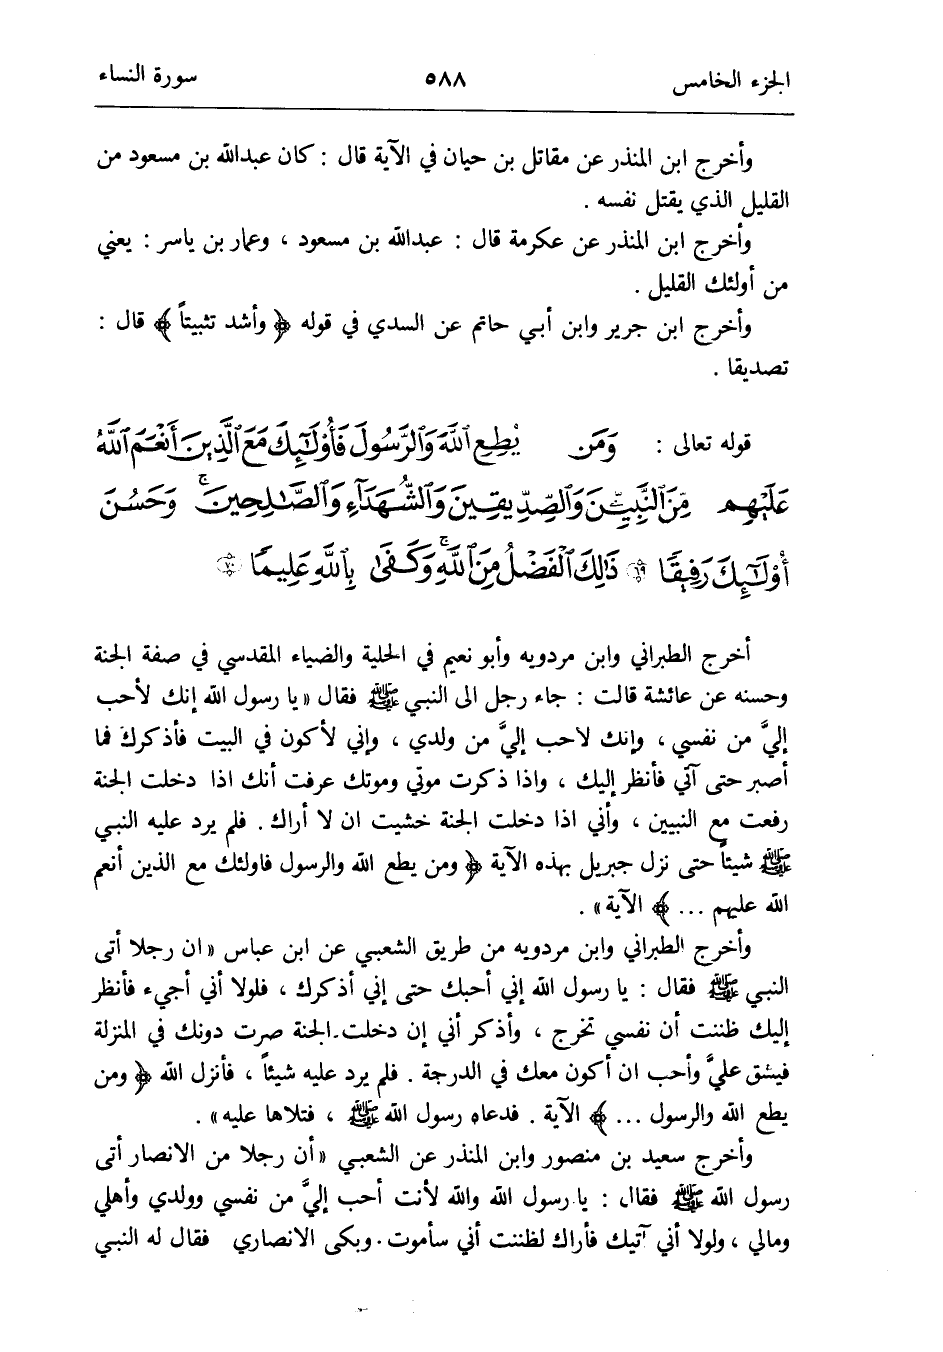 الجزء الخامس ٥٨٨ سورة النساء
وأخرج ابن المنذر عن مقاتل بن حيان في الآية قال : كان عبدالله بن مسعود من
القليل الذي يقتل نفسه .
وأخرج ابن المنذر عن عكرمة قال : عبدالله بن مسعود ، وعمار بن ياسر : يعني
من أولئك القليل .
وأخرج ابن جرير وابن أبي حاتم عن السدي في قوله ﴿ وأشد تثبيتاً ﴾ قال :
تصديقا .
قوله تعالى : وَمَن يُطِعِ ٱللَّهَ وَٱلرَّسُولَ فَأُوْلَٰٓئِكَ مَعَ ٱلَّذِينَ أَنْعَمَ ٱللَّهُ
عَلَيْهِم مِّنَ ٱلنَّبِيِّـۧنَ وَٱلصِّدِّيقِينَ وَٱلشُّهَدَآءِ وَٱلصَّٰلِحِينَۚ وَحَسُنَ
أُوْلَٰٓئِكَ رَفِيقًا ٦٩ ذَٰلِكَ ٱلْفَضْلُ مِنَ ٱللَّهِۚ وَكَفَىٰ بِٱللَّهِ عَلِيمًا ٧٠
أخرج الطبراني وابن مردويه وأبو نعيم في الحلية والضياء المقدسي في صفة الجنة
وحسنه عن عائشة قالت : جاء رجل الى النبي ﷺ فقال « يا رسول الله إنك لأحب
إليَّ من نفسي ، وإنك لاحب إليَّ من ولدي ، وإني لأكون في البيت فأذكرك فما
أصبر حتى آتي فأنظر إليك ، واذا ذكرت موتي وموتك عرفت أنك اذا دخلت الجنة
رفعت مع النبيين ، وأني اذا دخلت الجنة خشيت ان لا أراك . فلم يرد عليه النبي
ﷺ شيئاً حتى نزل جبريل بهذه الآية ﴿ ومن يطع الله والرسول فاولئك مع الذين أنعم
الله عليهم ... ﴾ الآية » .
وأخرج الطبراني وابن مردويه من طريق الشعبي عن ابن عباس « ان رجلا أتى
النبي ﷺ فقال : يا رسول الله إني أحبك حتى إني أذكرك ، فلولا أني أجيء فأنظر
إليك ظننت أن نفسي تخرج ، وأذكر أني إن دخلت الجنة صرت دونك في المنزلة
فيشق عليَّ وأحب ان أكون معك في الدرجة . فلم يرد عليه شيئاً ، فأنزل الله ﴿ ومن
يطع الله والرسول ... ﴾ الآية . فدعاه رسول الله ﷺ ، فتلاها عليه » .
وأخرج سعيد بن منصور وابن المنذر عن الشعبي « أن رجلا من الانصار أتى
رسول الله ﷺ فقال : يا رسول الله والله لأنت أحب إليَّ من نفسي وولدي وأهلي
ومالي ، ولولا أني آتيك فأراك لظننت أني سأموت . وبكى الانصاري فقال له النبي